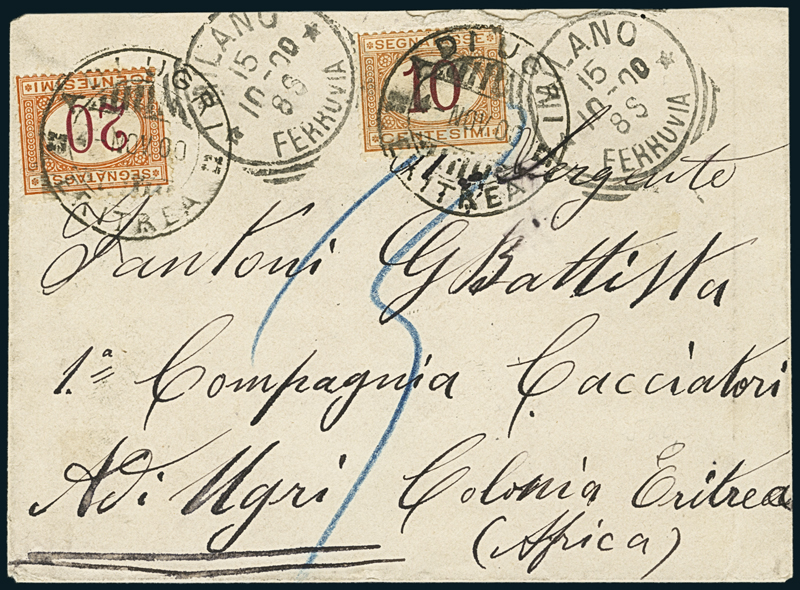 MILANO
15
10-00
8S
FERROVIA
ADI UGRI
NOV 00
ERITREA
SEGNATASSE
20
CENTESIMI
MILANO
15
10-00
8S
FERROVIA
ADI UGRI
NOV 00
ERITREA
SEGNATASSE
10
CENTESIMI
Sergente
Santoni G Battista
1.ª Compagnia Cacciatori
Adi Ugri Colonia Eritrea
(Africa)